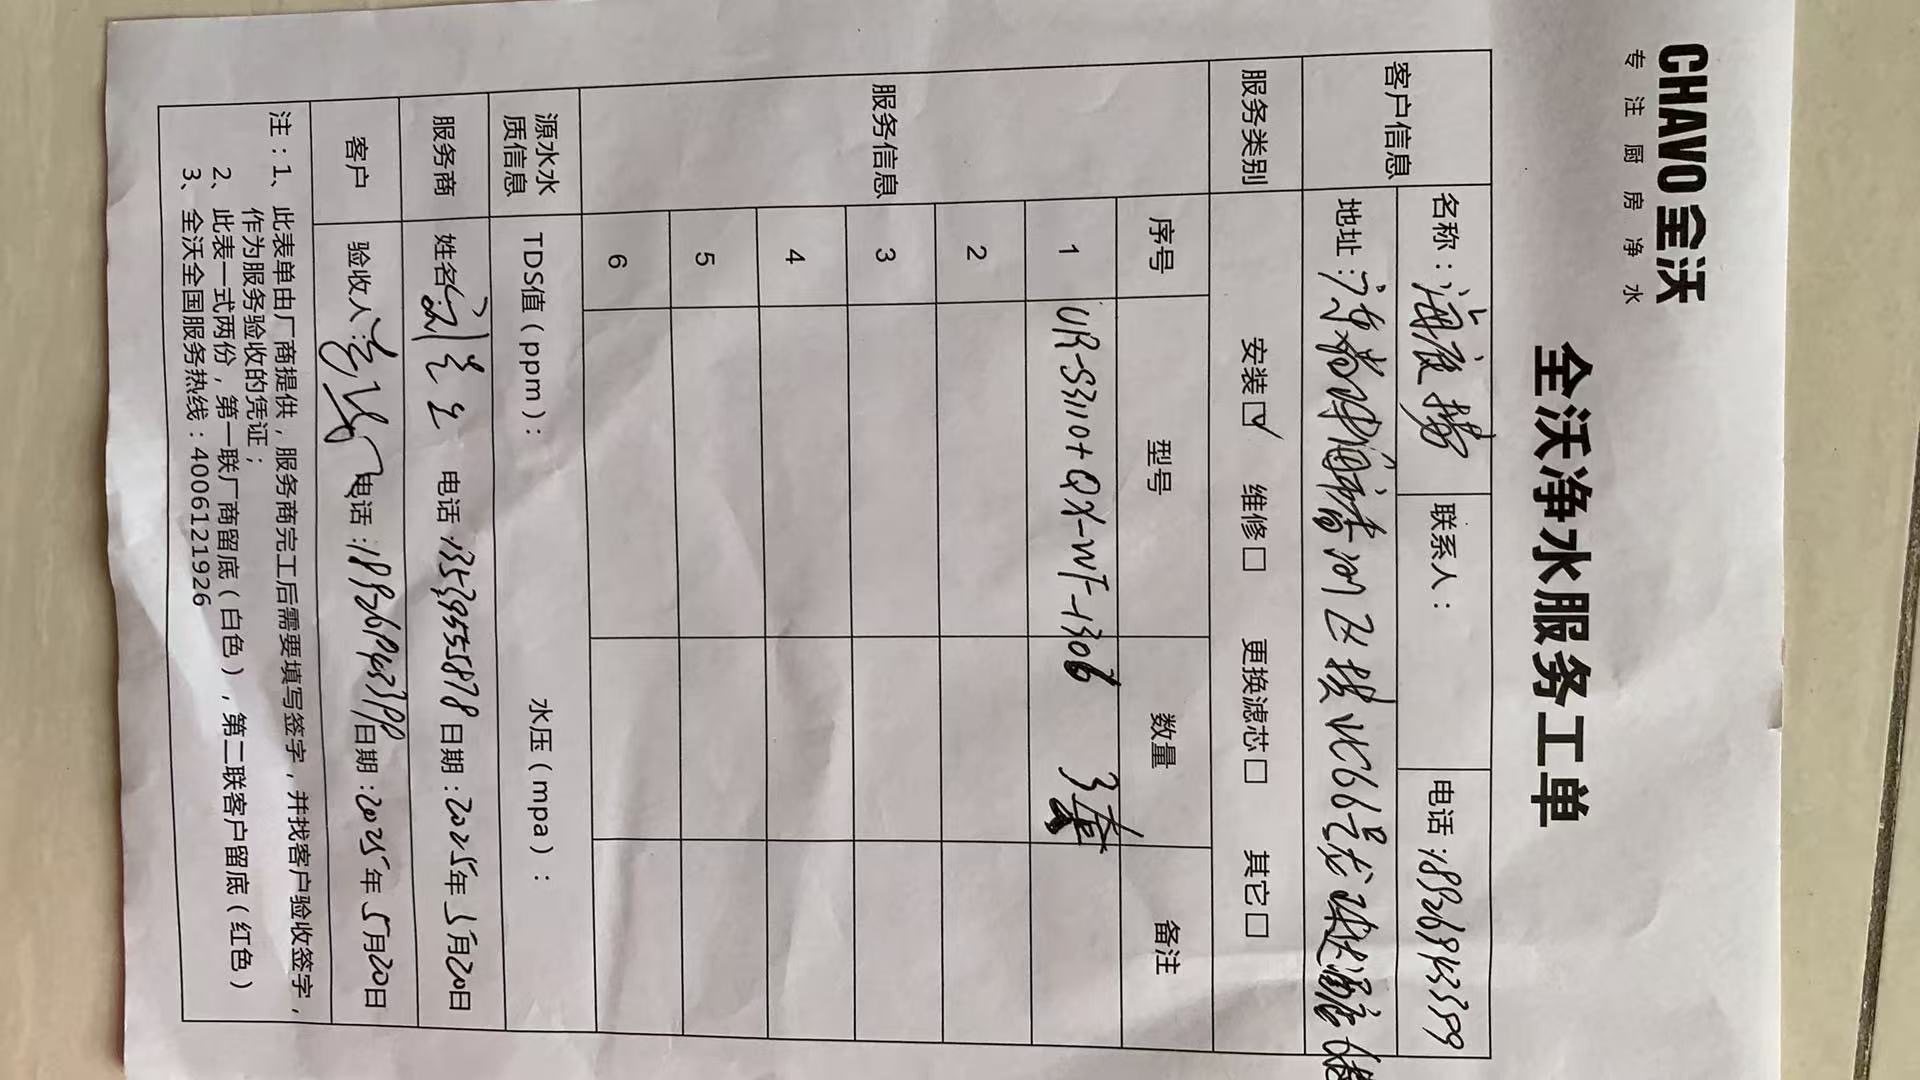 CHAVO全沃
专注厨房净水
全沃净水服务工单
客户信息
名称：海底捞
联系人：
电话：18926943399
地址：
服务类别
安装☑ 维修□ 更换滤芯□ 其它□
服务信息
序号 型号 数量 备注
1 UR-S3110+QX-WF-1306 3套
2
3
4
5
6
源水水质信息
TDS值（ppm）： 水压（mpa）：
服务商
姓名： 电话：13539955878 日期：2025年5月20日
客户
验收人： 电话：18926943399 日期：2025年5月20日
注：1、此表单由厂商提供，服务商完工后需要填写签字，并找客户验收签字，
作为服务验收的凭证；
2、此表一式两份，第一联厂商留底（白色），第二联客户留底（红色）
3、全沃全国服务热线：4006121926